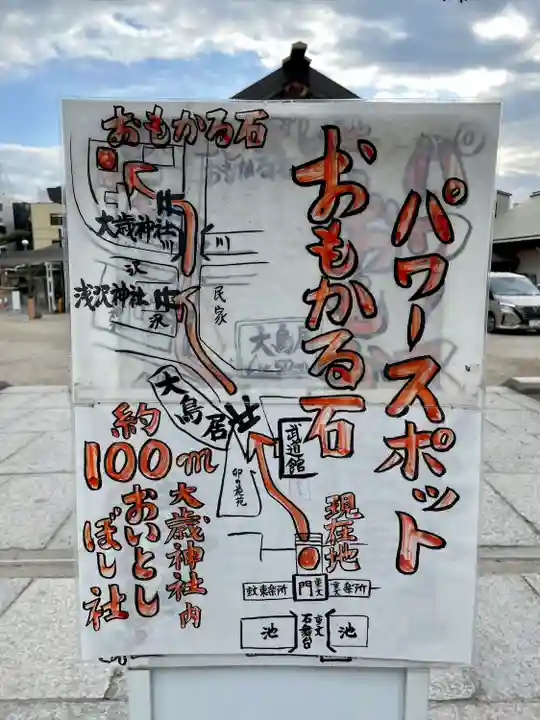 パワースポット
おもかる石
おもかる石
大歳神社
川
川
沢
浅沢神社
沢
民家
大鳥居
武道館
卯の花苑
約
100m
大歳神社内
おいとし
ぼし社
現在地
門
重文
楽所
池
石舞台
重文
池